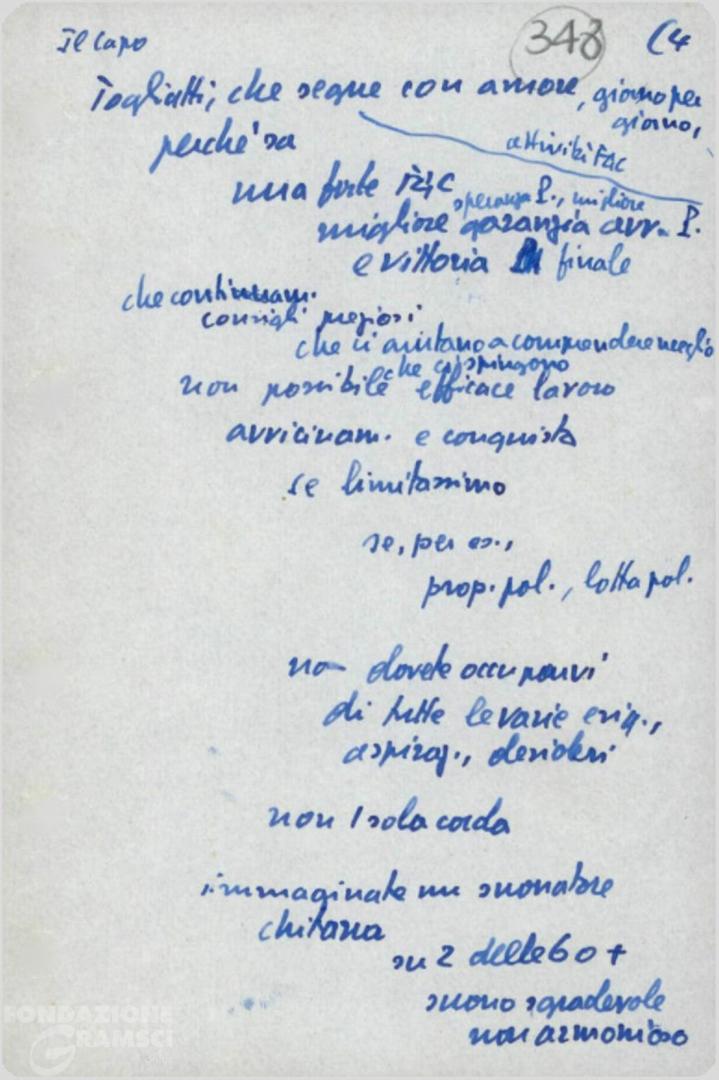 Il Capo
348 (4
Togliatti, che segue con amore, giorno per
giorno,
attività FGC
perché sa
una forte FGC
speranza P., migliore
migliore garanzia avv. P.
e vittoria finale
che continuam.
consigli preziosi
che ci aiutano a comprendere meglio
che ci spingono
non possibile efficace lavoro
avvicinam. e conquista
se limitassimo
se, per es.,
prop. pol., lotta pol.
non dovete occuparvi
di tutte le varie esig.,
aspiraz., desideri
non 1 sola corda
immaginate un suonatore
chitarra
su 2 delle 6 o +
suono sgradevole
non armonioso
FONDAZIONE
GRAMSCI